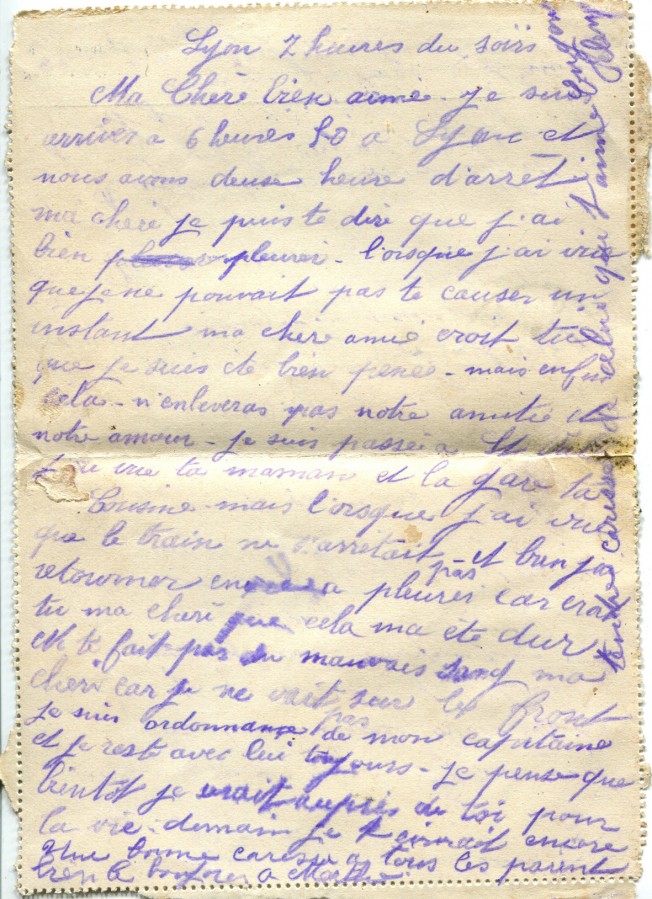 Lyon 7 heures du soirs
Ma Chère bien aimé. je suis
arrivés a 6 heures 50 a Lyon et
nous avons deuse heure d'arret
ma chère je puis te dire que j'ai
bien pleurer - l'orsque j'ai vue
que je ne pouvait pas te causer un
instant ma chère amié croit tu
que je suis éte bien penée - mais enfin
cela - n'enleveras pas notre amitié et
notre amour - je suis passée a St
j'ai vue ta maman et la gare ta
Cousine - mais l'orsque j'ai vue
que le train ne s'arretait pas - et bien j'ai
retourner encore a pleurer car croit
tu ma cheri que cela ma été dur
et te fait pas du mauvais sang ma
cheri car je ne vait pas sur le front
je suis ordonnance de mon capitaine
et je reste avec lui toujours - je pense que
bientôt je serait auprès de toi pour
la vie - demain je t'ecrirait encore
Une bonne caresse a tous les parent
bien le bonjour a Marthe.
tendre caresse de celui qui t'aime